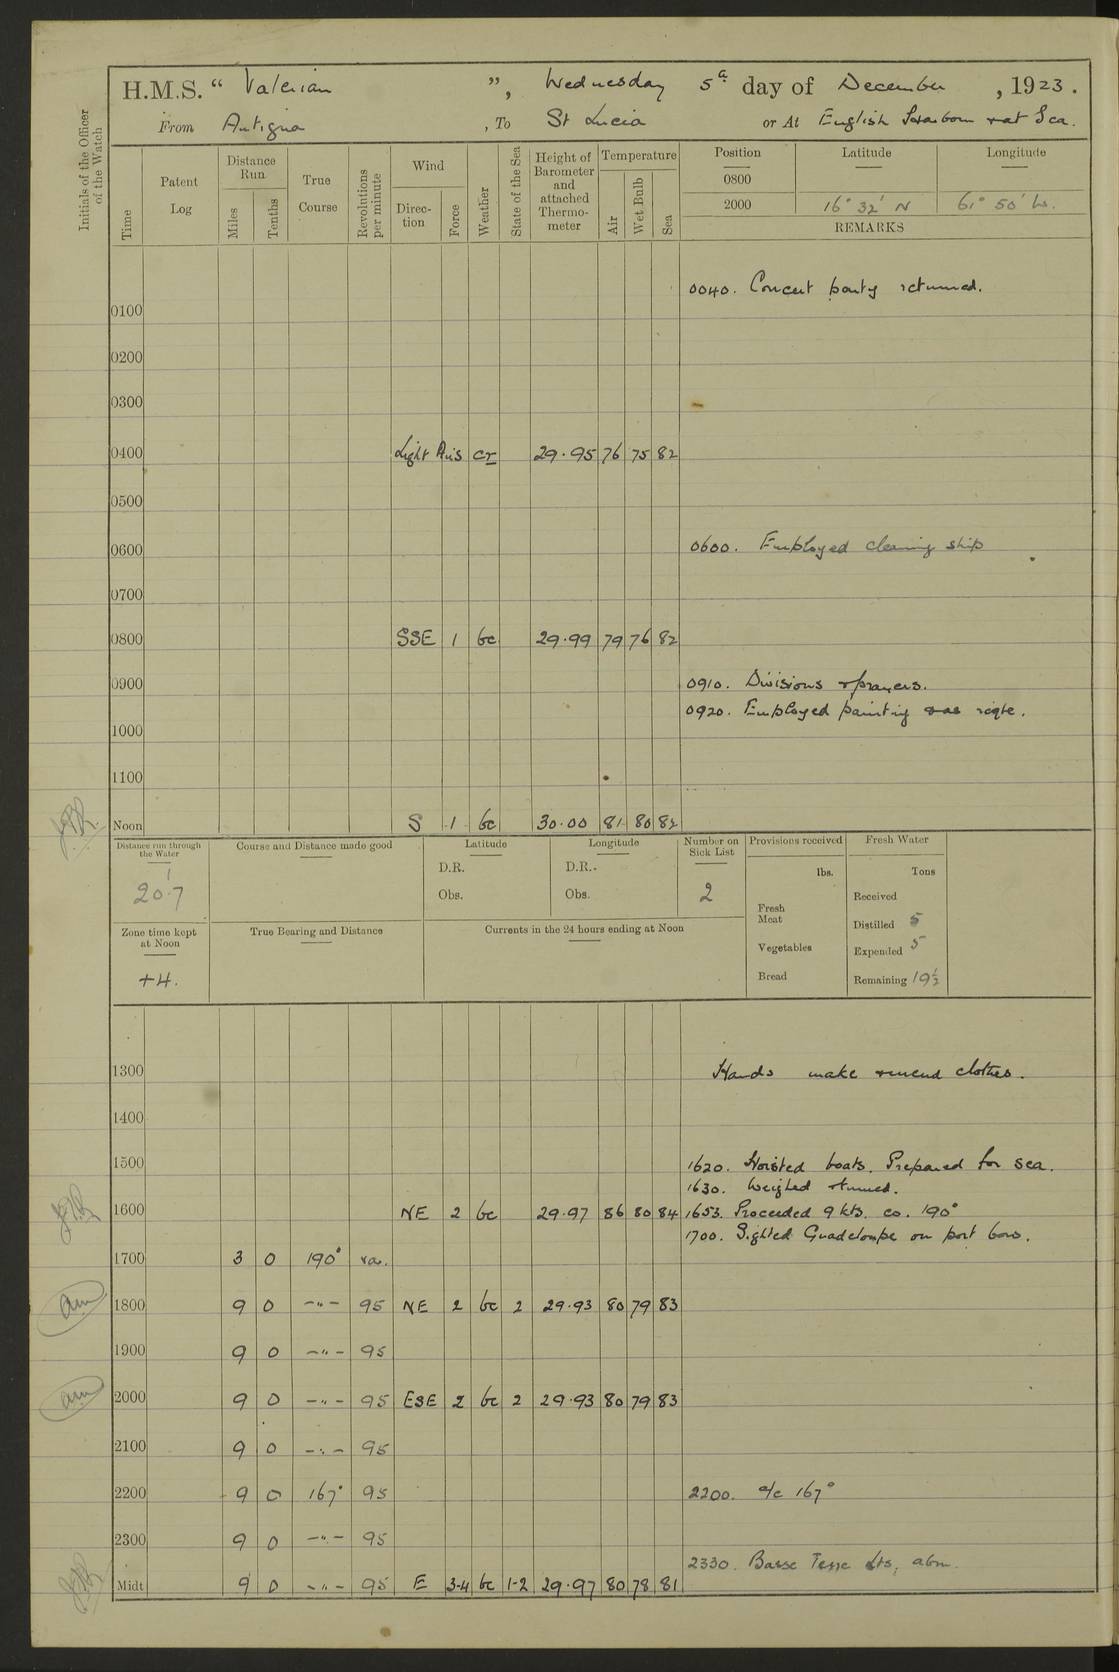 H.M.S. “ Valerian ”, Wednesday 5th day of December , 1923.
From Antigua , To St Lucia or At English Harbour & at Sea.
Initials of the Officer of the Watch
Time
Patent Log
Distance Run
Miles
Tenths
True Course
Revolutions per minute
Wind
Direction
Force
Weather
State of the Sea
Height of Barometer and attached Thermometer
Temperature
Air
Wet Bulb
Sea
Position Latitude Longitude
0800
2000 16° 32' N 61° 50' W.
REMARKS
0040. Concert party returned.
0100
0200
0300
0400 Light Airs cr 29.95 76 75 82
0500
0600 0600. Employed cleaning ship
0700
0800 SSE 1 bc 29.99 79 76 82
0900 0910. Divisions & prayers.
0920. Employed painting & as reqte.
1000
1100
Noon S 1 bc 30.00 81 80 82
Distance run through the Water
20.7
Course and Distance made good
Latitude
D.R.
Obs.
Longitude
D.R.
Obs.
Number on Sick List
2
Provisions received
lbs.
Fresh Meat
Vegetables
Bread
Fresh Water
Tons
Received
Distilled 5
Expended 5
Remaining 19½
Zone time kept at Noon
+4.
True Bearing and Distance
Currents in the 24 hours ending at Noon
1300 Hands make & mend clothes.
1400
1500 1620. Hoisted boats. Prepared for sea.
1630. Weighed & turned.
1600 NE 2 bc 29.97 86 80 84 1653. Proceeded 9 kts. co. 190°
1700. Sighted Guadeloupe on port bow.
1700 3 0 190° va.
1800 9 0 -"- 95 NE 2 bc 2 29.93 80 79 83
1900 9 0 -"- 95
2000 9 0 -"- 95 ESE 2 bc 2 29.93 80 79 83
2100 9 0 -"- 95
2200 9 0 167° 95 2200. a/c 167°
2300 9 0 -"- 95
2330. Basse Terre Lts, abm.
Midt 9 0 -"- 95 E 3-4 bc 1-2 29.97 80 78 81